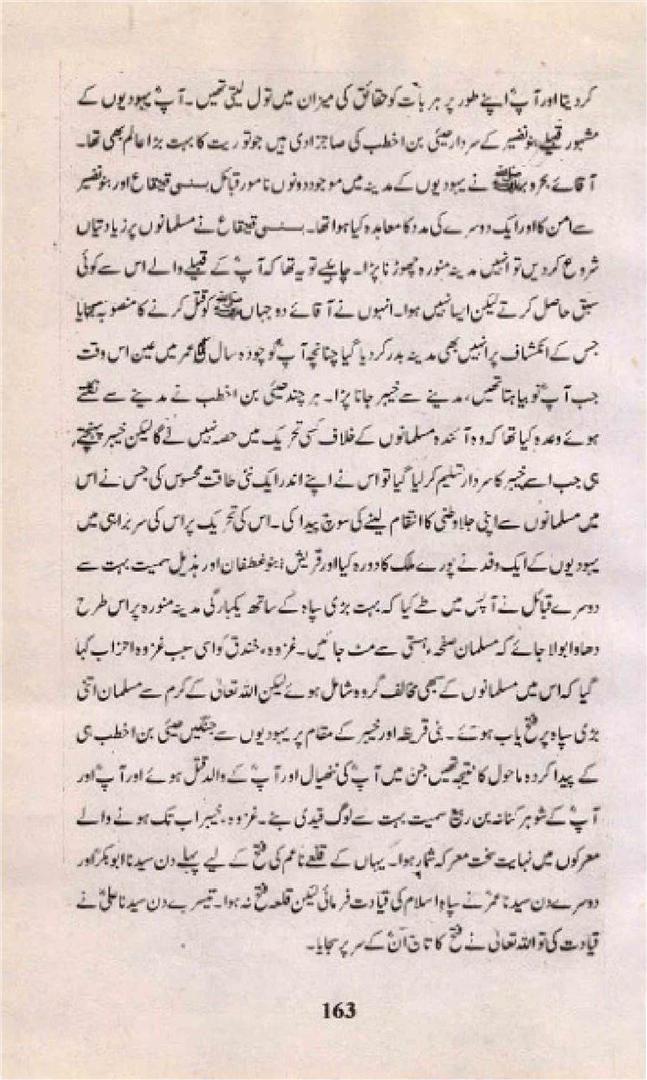 کر دیتا اور آپؓ اپنے طور پر ہر بات کو حقائق کی میزان میں تول لیتی تھیں۔ آپؓ یہودیوں کے
مشہور قبیلے بنو نضیر کے سردار حیئی بن اخطب کی صاحبزادی ہیں جو توریت کا بہت بڑا عالم بھی تھا۔
آقائے بحر و بر ﷺ نے یہودیوں کے مدینہ میں موجود دونوں نامور قبائل بنی قینقاع اور بنو نضیر
سے امن کا اور ایک دوسرے کی مدد کا معاہدہ کیا ہوا تھا۔ بنی قینقاع نے مسلمانوں پر زیادتیاں
شروع کر دیں تو انہیں مدینہ منورہ چھوڑنا پڑا۔ چاہیے تو یہ تھا کہ آپؓ کے قبیلے والے اس سے کوئی
سبق حاصل کرتے لیکن ایسا نہیں ہوا۔ انہوں نے آقائے دو جہاں ﷺ کو قتل کرنے کا منصوبہ سجایا
جس کے انکشاف پر انہیں بھی مدینہ بدر کر دیا گیا چنانچہ آپؓ کو چودہ سال کی عمر میں عین اس وقت
جب آپؓ نو بیاہتا تھیں، مدینے سے خیبر جانا پڑا۔ ہر چند حیئی بن اخطب نے مدینے سے نکلتے
ہوئے وعدہ کیا تھا کہ وہ آئندہ مسلمانوں کے خلاف کسی تحریک میں حصہ نہیں لے گا لیکن خیبر پہنچتے
ہی جب اسے خیبر کا سردار تسلیم کر لیا گیا تو اس نے اپنے اندر ایک نئی طاقت محسوس کی جس نے اس
میں مسلمانوں سے اپنی جلاوطنی کا انتقام لینے کی سوچ پیدا کی۔ اس کی تحریک پر اس کی سربراہی میں
یہودیوں کے ایک وفد نے پورے ملک کا دورہ کیا اور قریش، بنو غطفان اور ہذیل سمیت بہت سے
دوسرے قبائل نے آپس میں طے کیا کہ بہت بڑی سپاہ کے ساتھ یکبارگی مدینہ منورہ پر اس طرح
دھاوا بولا جائے کہ مسلمان صفحہ ہستی سے مٹ جائیں۔ غزوہ خندق کو اسی سبب غزوہ احزاب کہا
گیا کہ اس میں مسلمانوں کے سبھی مخالف گروہ شامل ہوئے لیکن اللہ تعالیٰ کے کرم سے مسلمان اتنی
بڑی سپاہ پر فتح یاب ہوئے۔ بنی قریظہ اور خیبر کے مقام پر یہودیوں سے جنگیں حیئی بن اخطب ہی
کے پیدا کردہ ماحول کا نتیجہ تھیں جن میں آپؓ کی ننھیال اور آپؓ کے والد قتل ہوئے اور آپؓ اور
آپؓ کے شوہر کنانہ بن ربیع سمیت بہت سے لوگ قیدی بنے۔ غزوہ خیبر اب تک ہونے والے
معرکوں میں نہایت سخت معرکہ شمار ہوا۔ یہاں کے قلعے ناعم کی فتح کے لیے پہلے دن سیدنا ابوبکرؓ اور
دوسرے دن سیدنا عمرؓ نے سپاہ اسلام کی قیادت فرمائی لیکن قلعہ فتح نہ ہوا۔ تیسرے دن سیدنا علیؓ نے
قیادت کی تو اللہ تعالیٰ نے فتح کا تاج اُنؓ کے سر پر سجایا۔
163